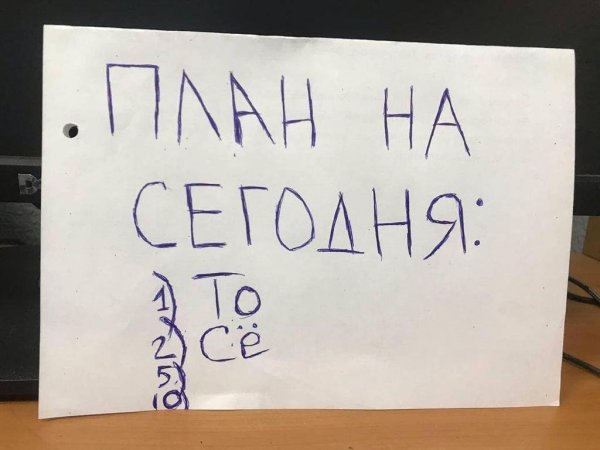 ПЛАН НА
СЕГОДНЯ:
1) То
2) Сё
5)